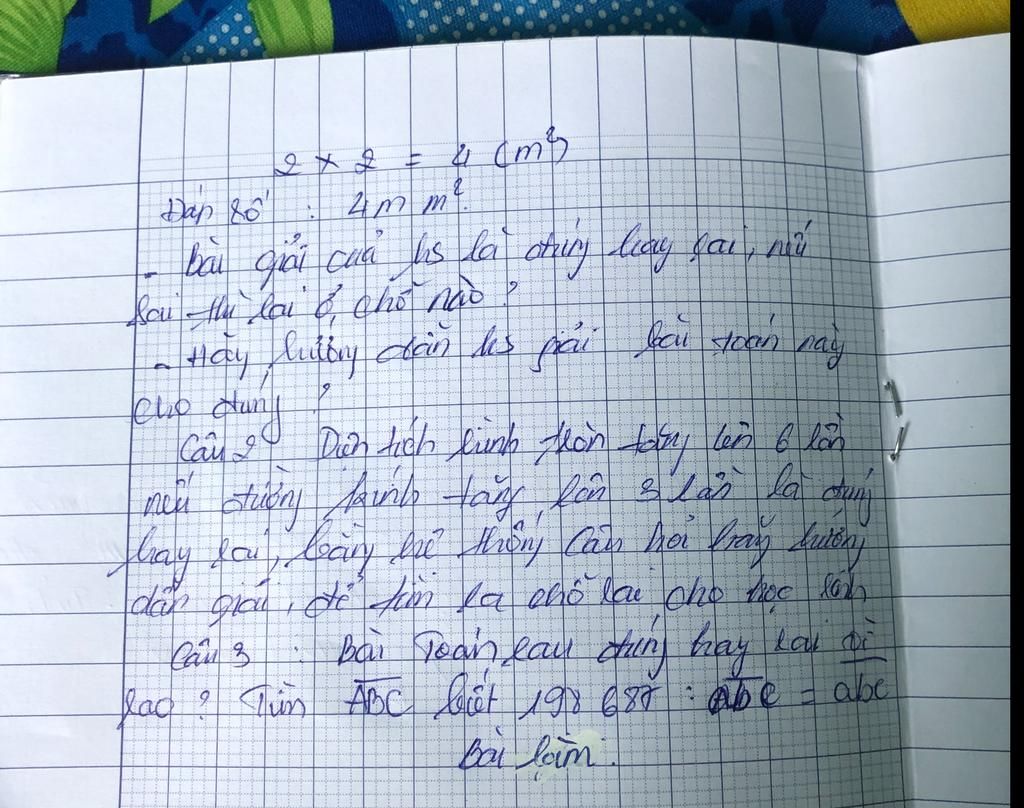 2 × 2 = 4 (m²)
Đáp số : 4m m².
- Bài giải của hs là đúng hay sai, nếu
sai thì sai ở chỗ nào?
- Hãy hướng dẫn hs giải bài toán này
cho đúng?
Câu 2 Diện tích hình tròn tăng lên 6 lần
nếu đường kính tăng lên 3 lần là đúng
hay sai, bằng hệ thống câu hỏi hãy hướng
dẫn giải, để tìm ra chỗ sai cho học sinh
Câu 3 : Bài Toán sau đúng hay sai vì
sao? Tìm ABC biết 198 688 : abc = abc
Bài làm.